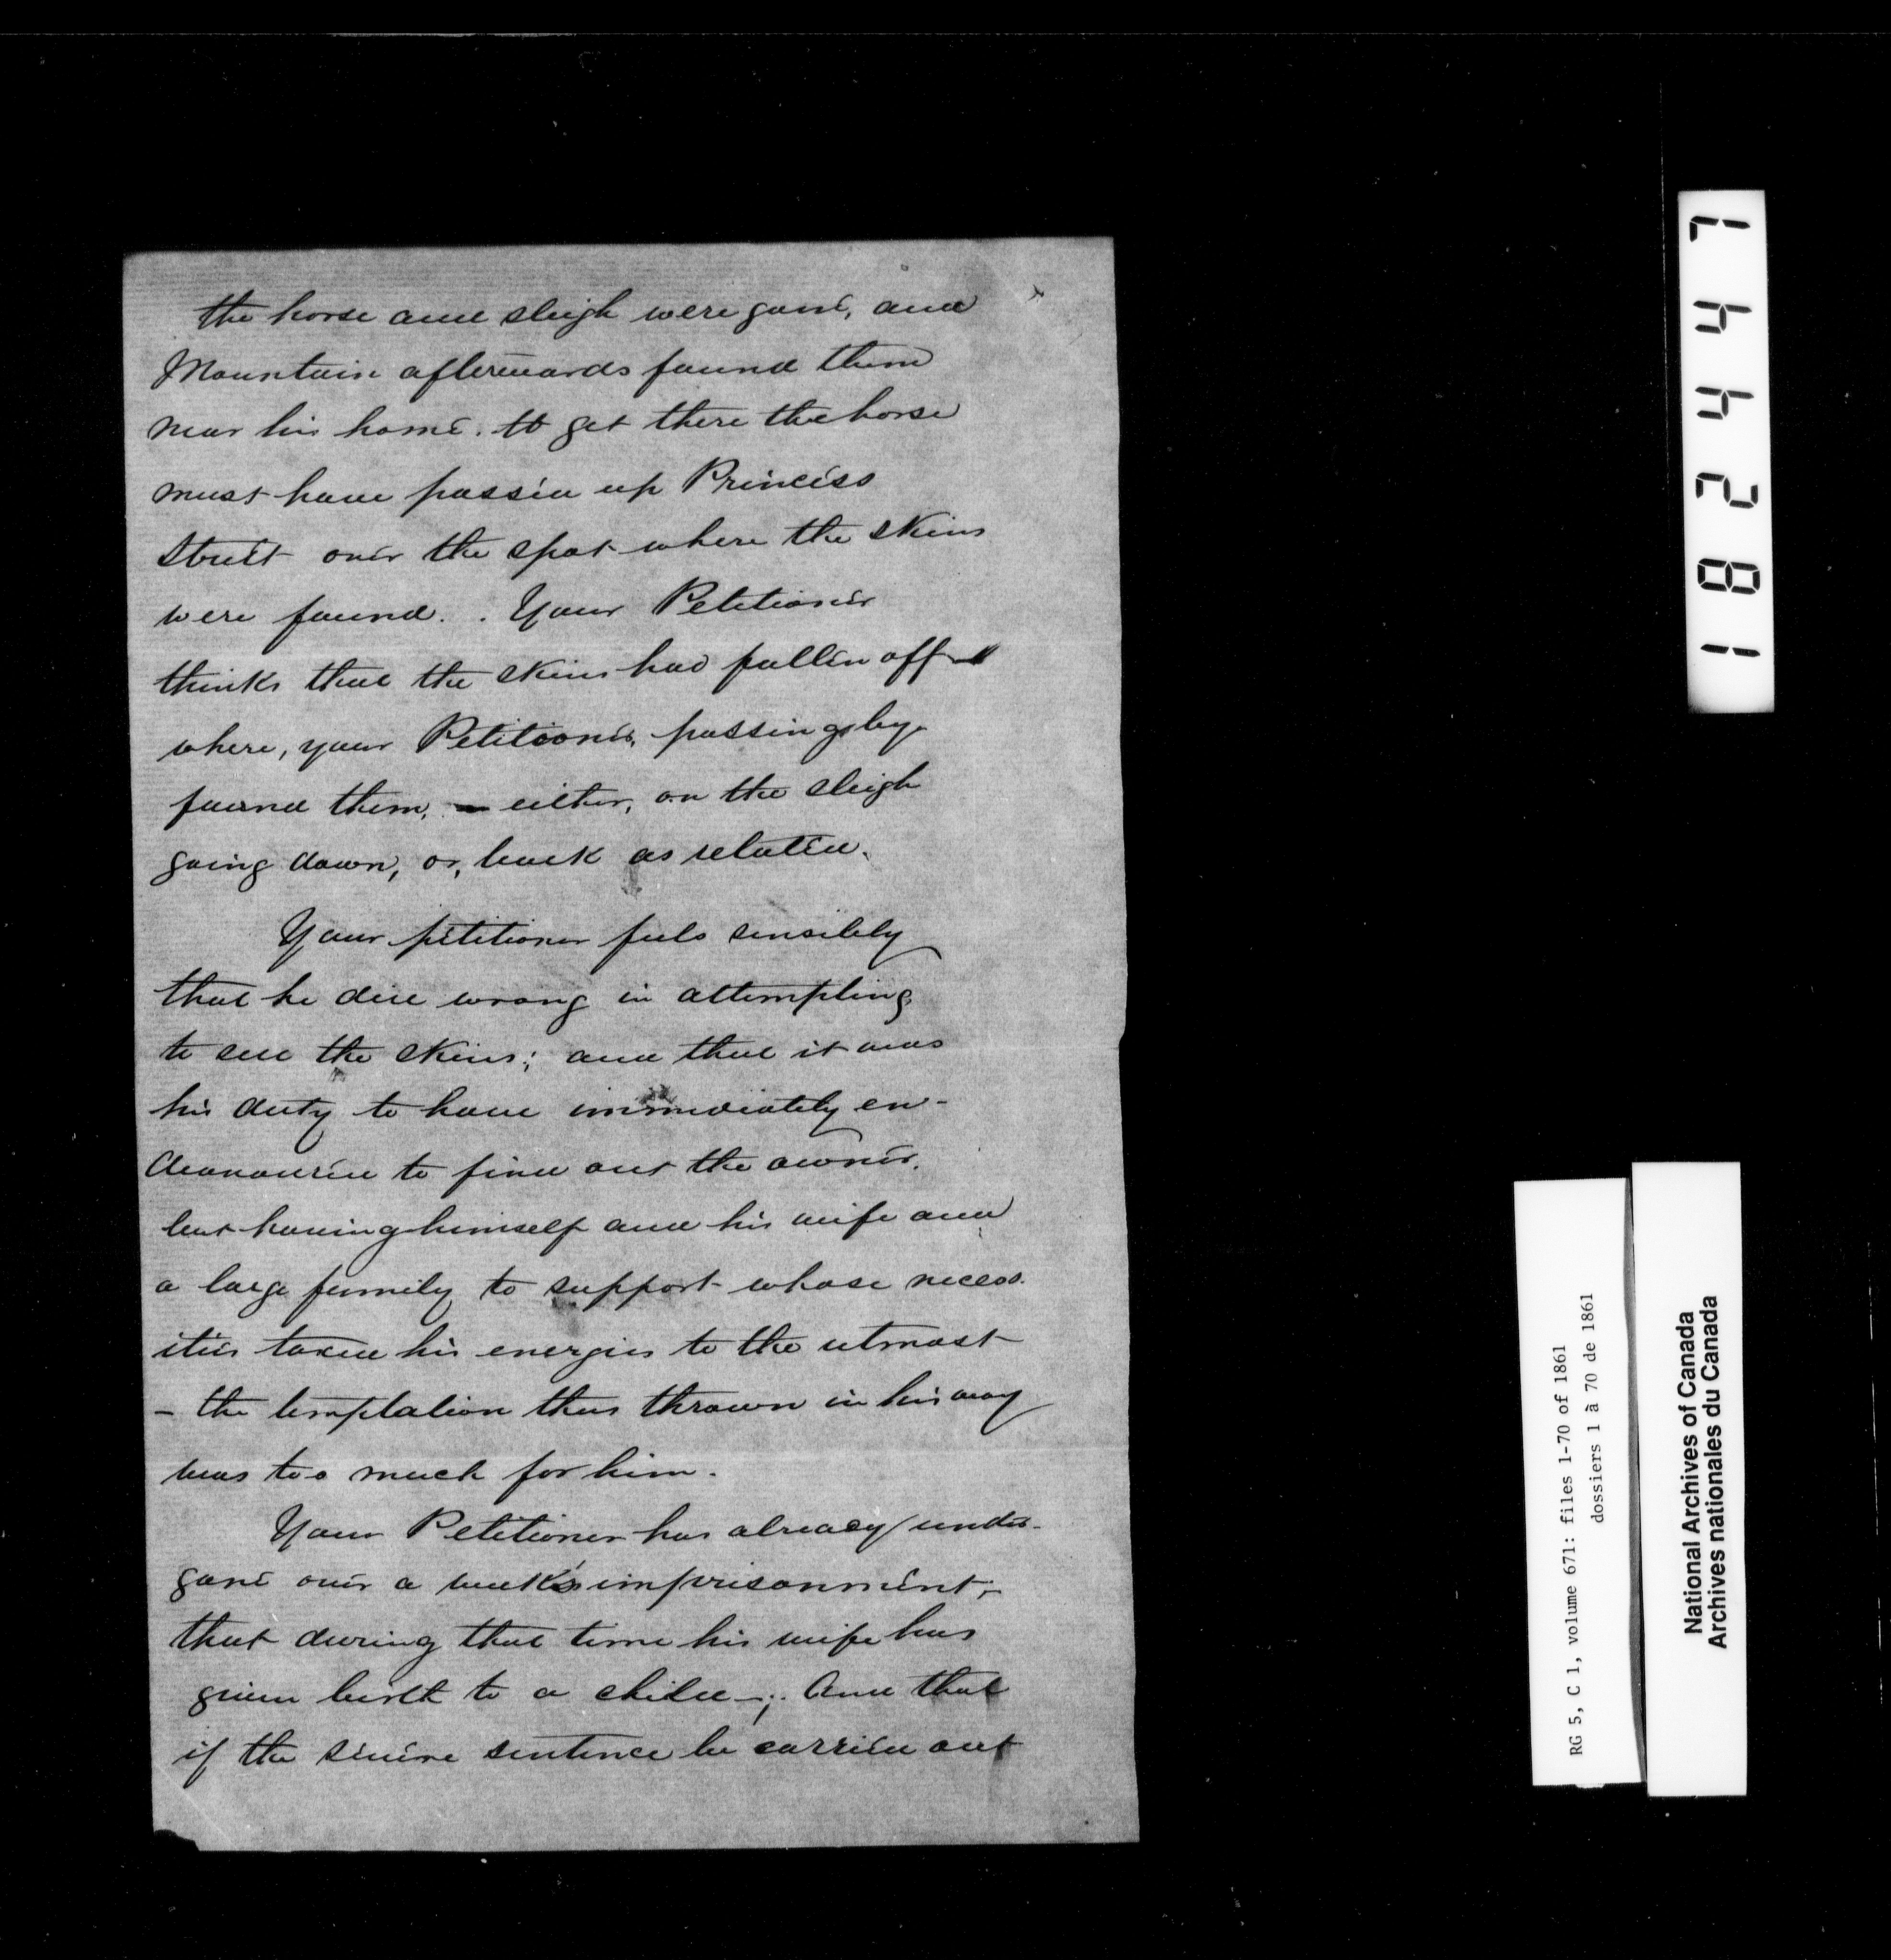 the horse and sleigh were gone, and
Mountain afterwards found them
near his home. to get there the horse
must have passed up Princess
Street over the spot where the skins
were found. . Your Petitioner
thinks that the skins had fallen off
where, your Petitioner, passing by,
found them, – either, on the sleigh
going down, or, back as related.
Your petitioner feels sensibly
that he did wrong in attempting
to sell the skins; and that it was
his duty to have immediately en-
deavoured to find out the owner,
but having himself and his wife and
a large family to support whose necess
ities taxed his energies to the utmost
– the temptation thus thrown in his way
was too much for him.
Your Petitioner has already under-
gone over a week's imprisonment;
that during that time his wife has
given birth to a child –; And that
if the severe sentence be carried out
182447
RG 5, C 1, volume 671: files 1-70 of 1861
dossiers 1 à 70 de 1861
National Archives of Canada
Archives nationales du Canada